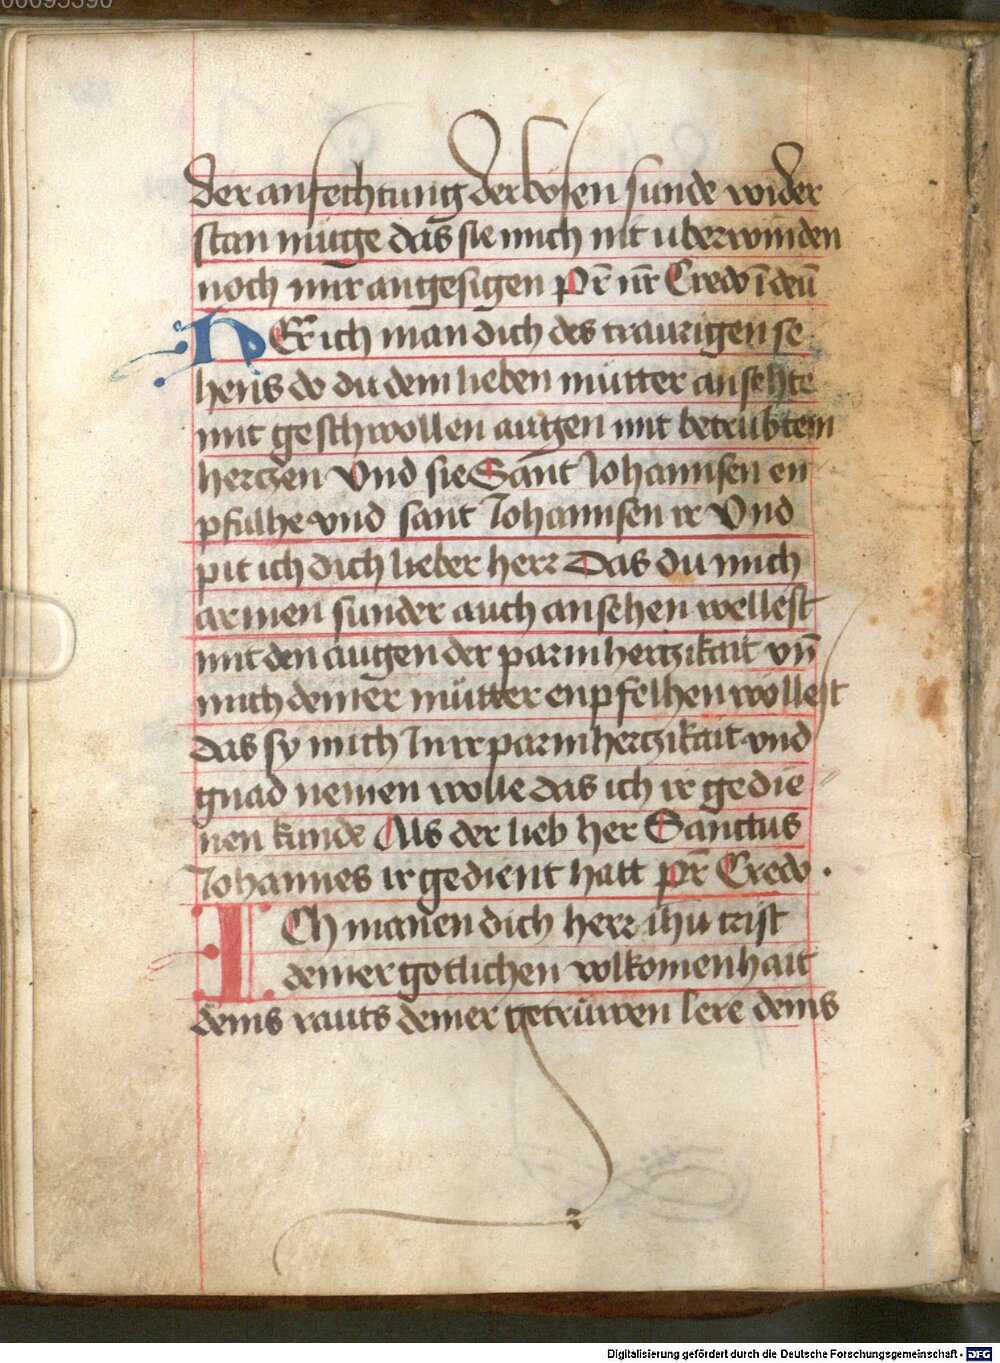 00095390
der anfechtung der bösen sunde wider
stan müge das sie mich nit uberwinden
noch mir angesigen pr̄ nr̄ Credo ī deū
HERr ich man dich des traurigen se
hens do du dem lieben mutter ansehte
mit geschwollen augen mit betrübtem
hertzen Vnd sie Sant Johannsen en
pfulhe vnd sant Johannsen ir Vnd
pit ich dich lieber herr Das du mich
armen sunder auch ansehen wellest
mit den augen der parmhertzikait vn̄
mich deiner mütter enpfelhen wollest
das sy mich In ir parmhertzikait vnd
gnad nemen wolle das ich ir gedie
nen kunde Als der lieb her Sanctus
Johannes ir gedient hatt pr̄ Credo .
ICh manen dich herr ihu crist
deiner gotlichen volkomenhait
deins rauts deiner getrüwen lere deins
Digitalisierung gefördert durch die Deutsche Forschungsgemeinschaft - DFG